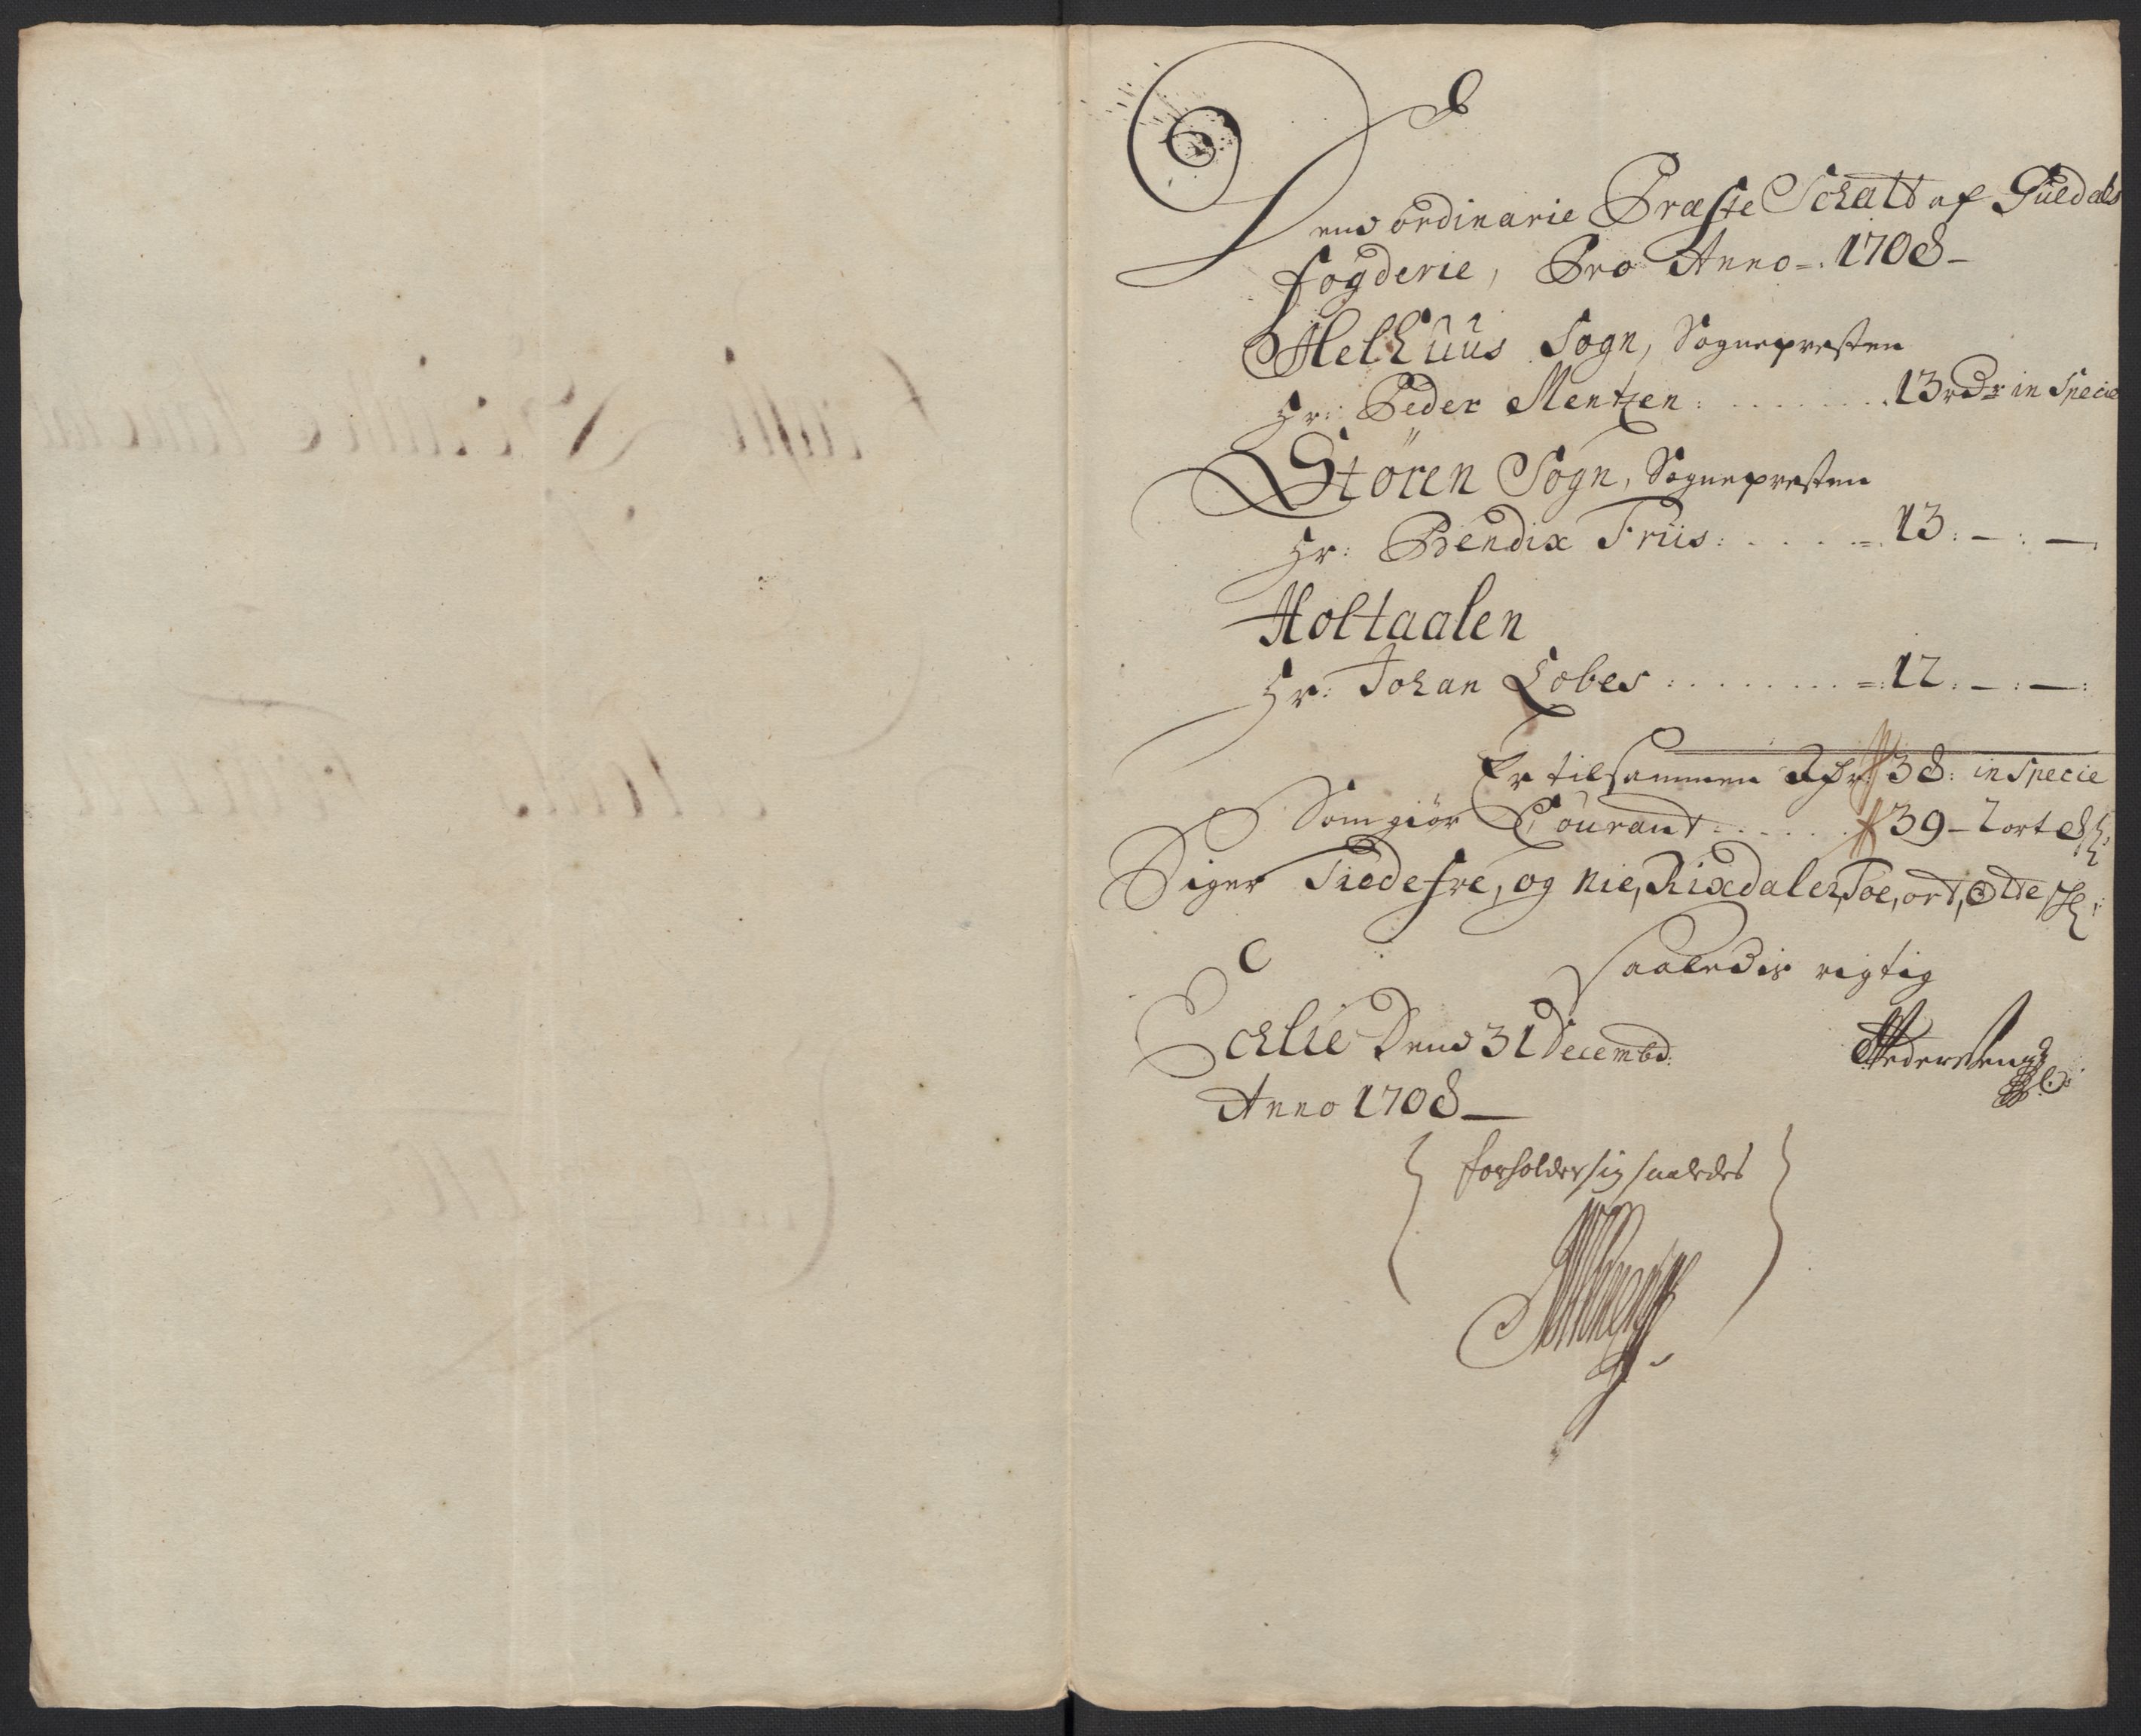 Dend ordinarie Præste Schatt af Guldals
fogderie, Pro Anno 1708
Melhuus Sogn, Sognepresten
Hr: Peder Mentzen: 13 rdr in Specie
Stören Sogn, Sognepresten
Hr: Bendix Friis: 13: – : –
Holtaalen
Hr: Johan Lobes: 12: – : –
Er tilsammen Rdr: 38: in Specie
Som giör Courant 39 – 2 ort 8 s:
Siger Tredefve, og Nie, Rixdaler, Toe, ort, Otte s:
saaledis rigtig
Dend 31 Decembr:
Anno 1708
Pedersen
forholder sig saaledes